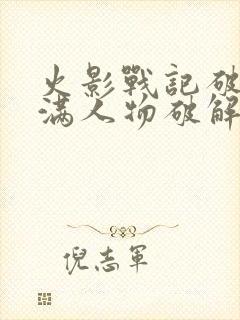 火影戰記破
滿人物破解
倪志軍